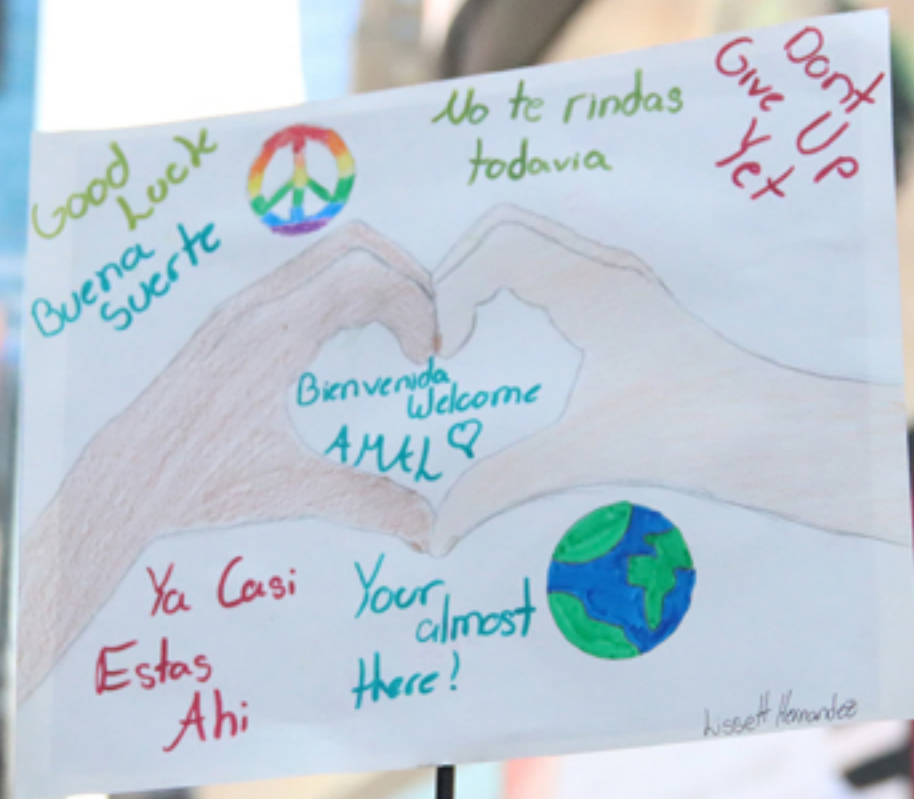 Good
Luck
Buena
suerte
No te rindas
todavia
Dont
Give UP
Yet
Bienvenida
Welcome
AMAL
Ya Casi
Estas
Ahi
Your
almost
there!
Lissett Hernandez